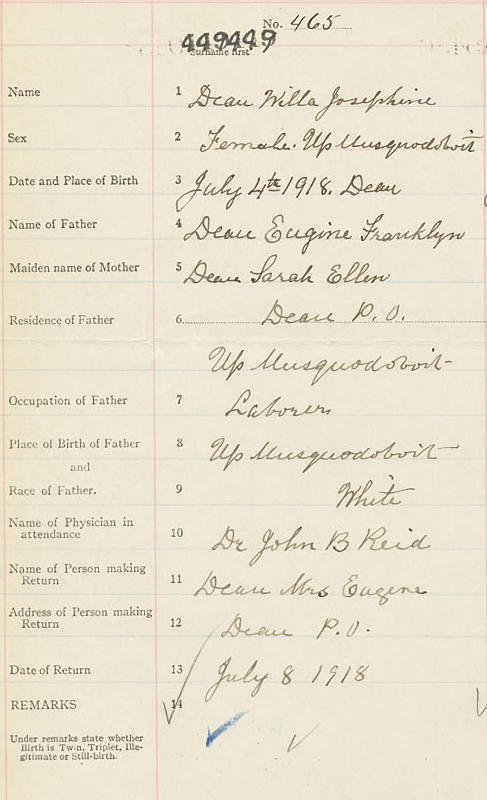 No. 465
449449
Surname first
Name 1 Dean Willa Josephine
Sex 2 Female. Up Musquodoboit
Date and Place of Birth 3 July 4th 1918. Dean
Name of Father 4 Dean Eugine Franklyn
Maiden name of Mother 5 Dean Sarah Ellen
Residence of Father 6 Dean P. O.
Up Musquodoboit
Occupation of Father 7 Laborer
Place of Birth of Father 8 Up Musquodoboit
and
Race of Father. 9 White
Name of Physician in
attendance 10 Dr John B Reid
Name of Person making
Return 11 Dean Mrs Eugine
Address of Person making
Return 12 Dean P.O.
Date of Return 13 July 8 1918
REMARKS 14
Under remarks state whether
Birth is Twin, Triplet, Ille-
gitimate or Still-birth.